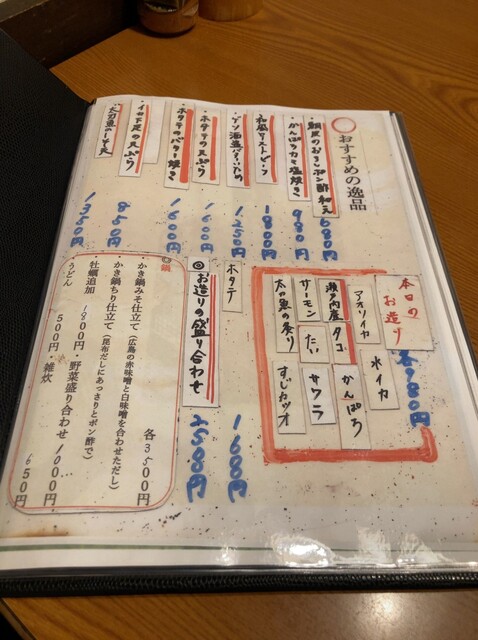 おすすめの逸品
鯛皮のおろしポン酢和え 680円
かんぱちカマ塩焼き 980円
和風ローストビーフ 1800円
ゲソ酒盗バターいため 1250円
ホタテの天ぷら 1600円
ホタテのバター焼き 1600円
・イカ下足の天ぷら 850円
・太刀魚のしそ天 1350円
本日の
お造り
各980円
アオリイカ
水イカ
瀬戸内産 タコ
かんぱち
サーモン
たい
サワラ
太刀魚の炙り
すじカツオ
ホタテ 1680円
◎お造りの盛り合わせ 2500円
◎鍋
・かき鍋みそ仕立て（広島の赤味噌と白味噌を合わせただし）
各3500円
・かき鍋ちり仕立て（昆布だしにあっさりとポン酢で）
・牡蠣追加 1300円・野菜盛り合わせ 1000円
・うどん 500円・雑炊 650円